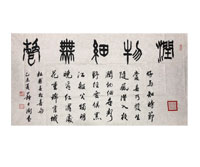 潤物細無聲
好雨知時節
當春乃發生
隨風潛入夜
潤物細無聲
野徑雲俱黑
江船火獨明
曉看紅濕處
花重錦官城